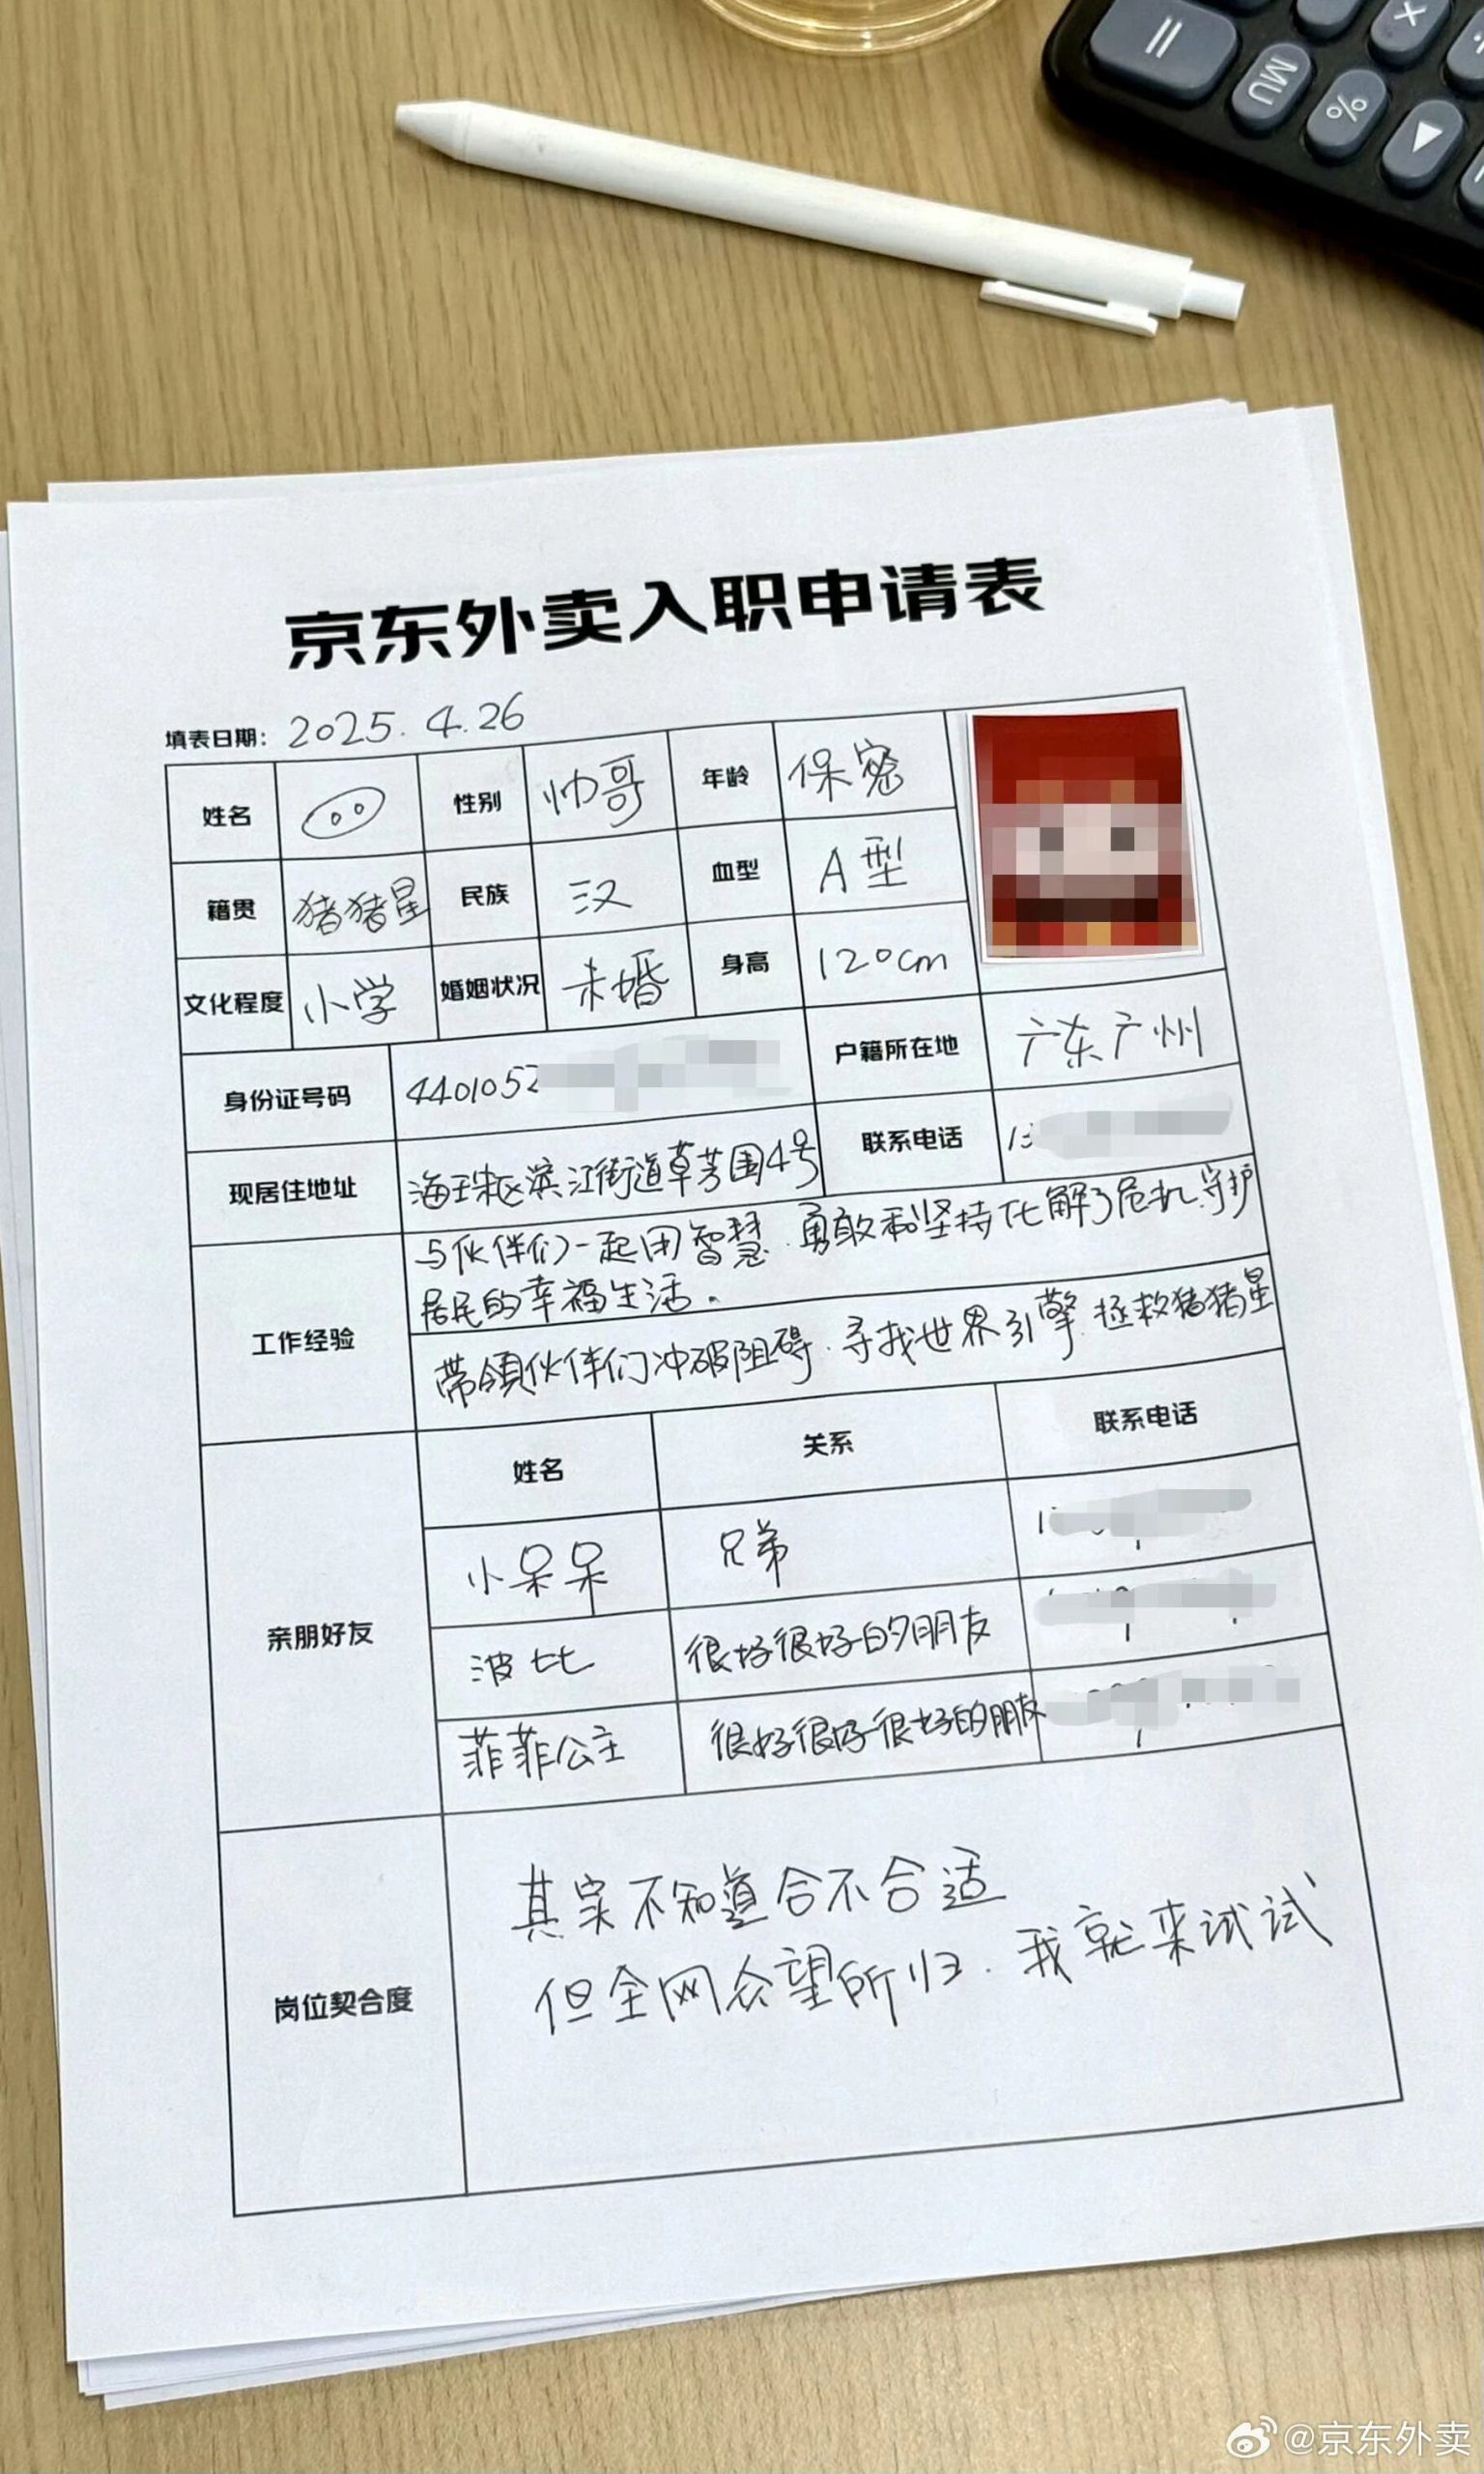 = MU × % ▶
京东外卖入职申请表
填表日期： 2025.4.26
姓名 性别 帅哥 年龄 保密
籍贯 猪猪星 民族 汉 血型 A型
文化程度 小学 婚姻状况 未婚 身高 120cm
身份证号码 4401052 户籍所在地 广东广州
现居住地址 海珠区滨江街道草芳围4号 联系电话 13
工作经验 与伙伴们一起用智慧、勇敢和坚持化解了危机、守护
居民的幸福生活。
带领伙伴们冲破阻碍、寻找世界引擎、拯救猪猪星
亲朋好友 姓名 关系 联系电话
小呆呆 兄弟 1
波比 很好很好的朋友
菲菲公主 很好很好很好的朋友
岗位契合度 其实不知道合不合适
但全网众望所归、我就来试试
@京东外卖